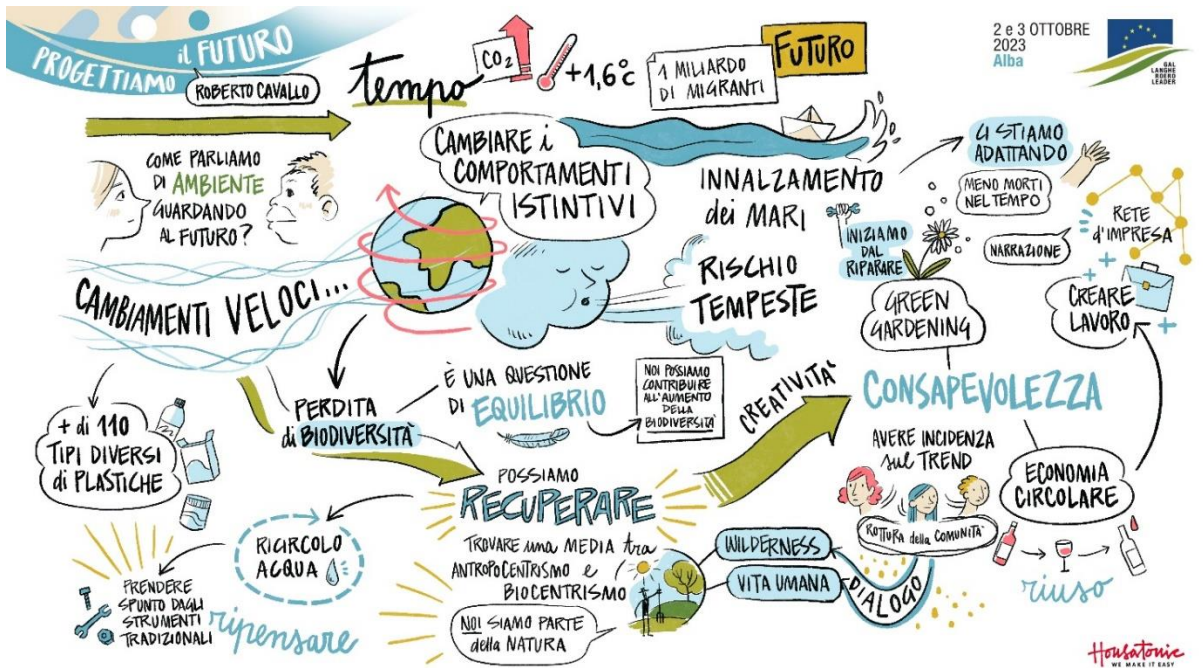 PROGETTIAMO
il FUTURO
ROBERTO CAVALLO
tempo
CO2
+1,6°c
1 MILIARDO
DI MIGRANTI
FUTURO
2 e 3 OTTOBRE
2023
Alba
GAL
LANGHE
ROERO
LEADER
COME PARLIAMO
DI AMBIENTE
GUARDANDO
AL FUTURO?
CAMBIARE i
COMPORTAMENTI
ISTINTIVI
INNALZAMENTO
dei MARI
CI STIAMO
ADATTANDO
MENO MORTI
NEL TEMPO
NARRAZIONE
RETE
d'IMPRESA
INIZIAMO
DAL
RIPARARE
GREEN
GARDENING
CREARE
LAVORO
CAMBIAMENTI VELOCI...
RISCHIO
TEMPESTE
+ di 110
TIPI DIVERSI
di PLASTICHE
PERDITA
di BIODIVERSITÀ
È UNA QUESTIONE
DI EQUILIBRIO
NOI POSSIAMO
CONTRIBUIRE
ALL'AUMENTO
DELLA
BIODIVERSITÀ
CREATIVITÀ
CONSAPEVOLEZZA
AVERE INCIDENZA
sul TREND
ROTTURA della COMUNITÀ
ECONOMIA
CIRCOLARE
riuso
POSSIAMO
RECUPERARE
TROVARE una MEDIA tra
ANTROPOCENTRISMO e
BIOCENTRISMO
NOI SIAMO PARTE
della NATURA
WILDERNESS
VITA UMANA
DIALOGO
RICIRCOLO
ACQUA
PRENDERE
SPUNTO DAGLI
STRUMENTI
TRADIZIONALI
ripensare
Housatonic
WE MAKE IT EASY